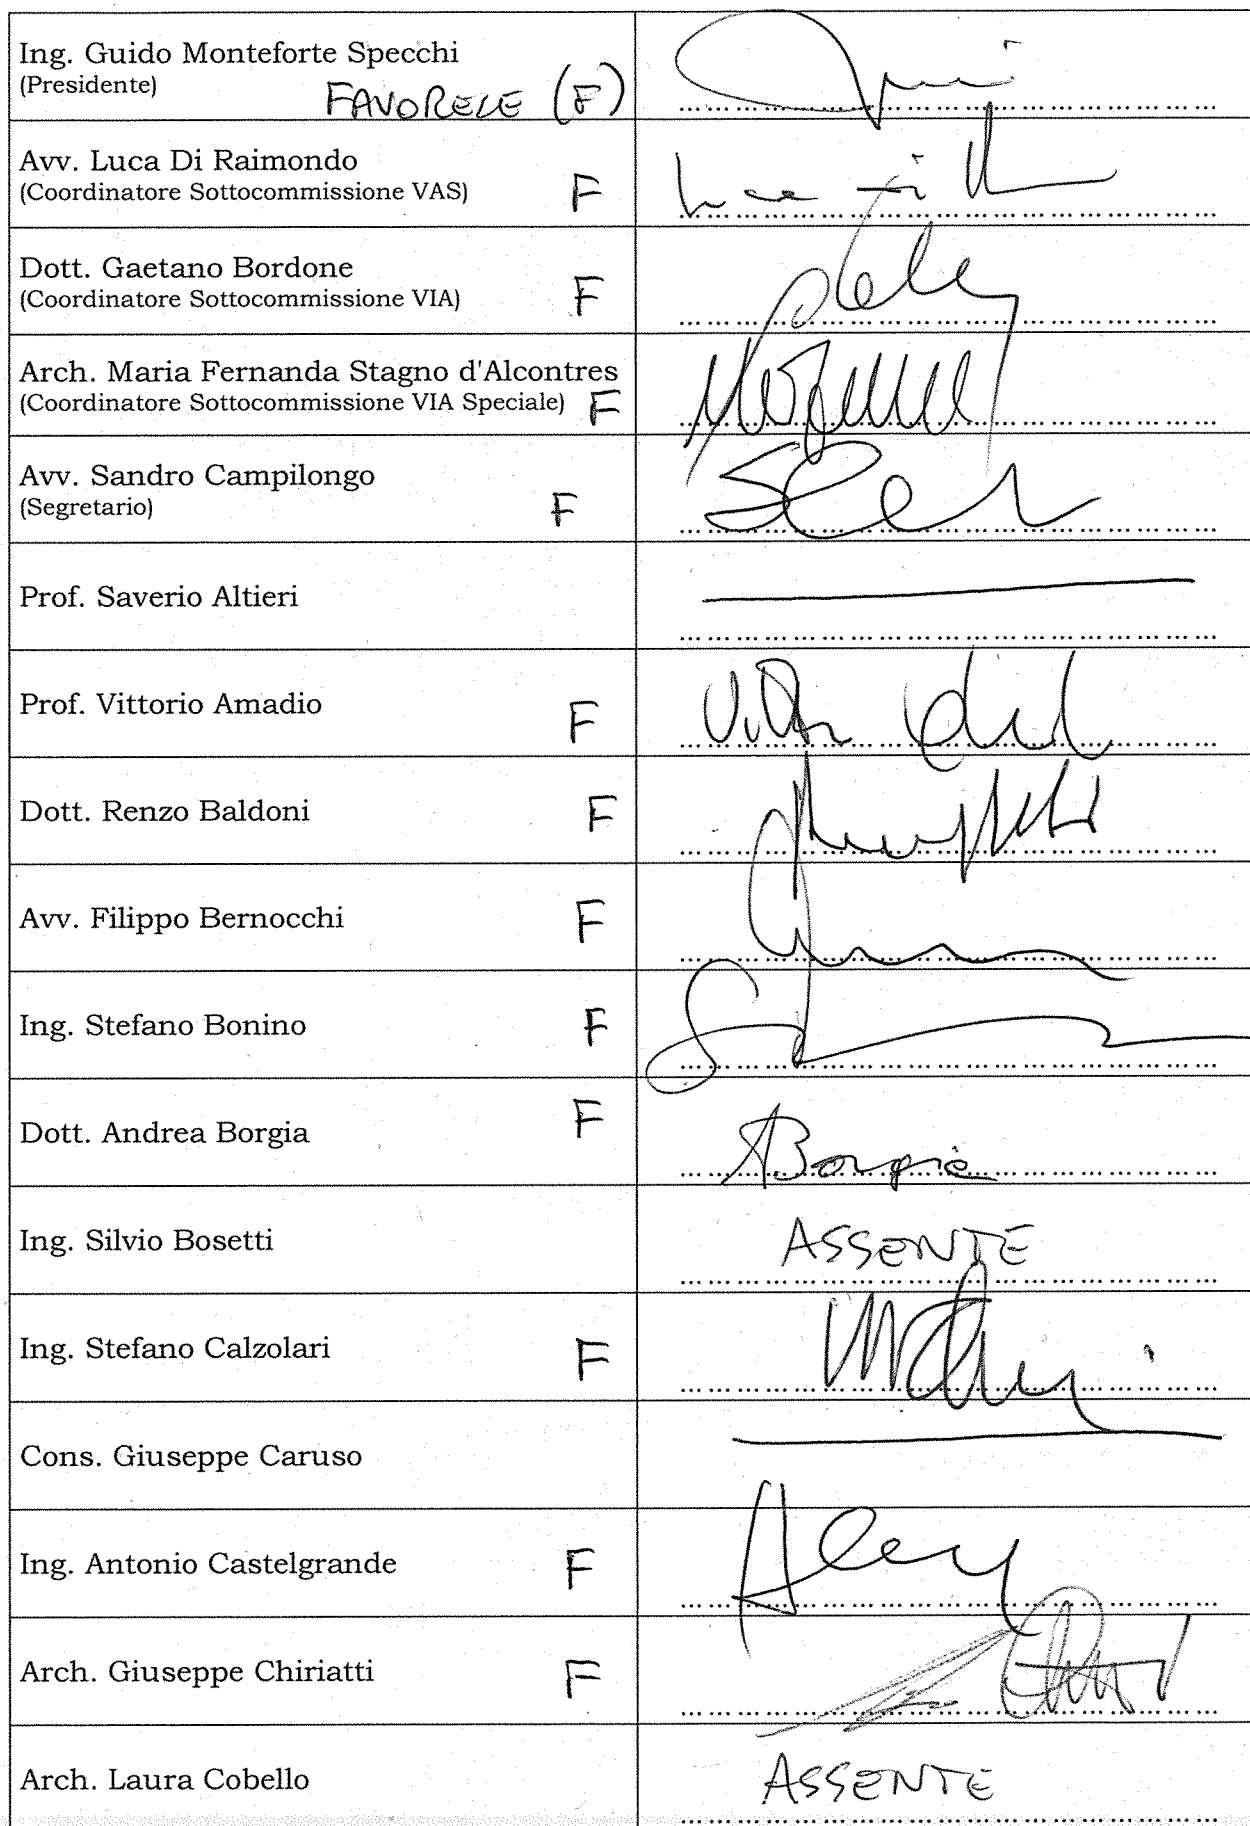 Ing. Guido Monteforte Specchi
(Presidente)
FAVORELE (F)
Avv. Luca Di Raimondo
(Coordinatore Sottocommissione VAS) F
Dott. Gaetano Bordone
(Coordinatore Sottocommissione VIA) F
Arch. Maria Fernanda Stagno d'Alcontres
(Coordinatore Sottocommissione VIA Speciale) F
Avv. Sandro Campilongo
(Segretario) F
Prof. Saverio Altieri
Prof. Vittorio Amadio F
Dott. Renzo Baldoni F
Avv. Filippo Bernocchi F
Ing. Stefano Bonino F
Dott. Andrea Borgia F ABorgia
Ing. Silvio Bosetti ASSENTE
Ing. Stefano Calzolari F
Cons. Giuseppe Caruso
Ing. Antonio Castelgrande F
Arch. Giuseppe Chiriatti F
Arch. Laura Cobello ASSENTE